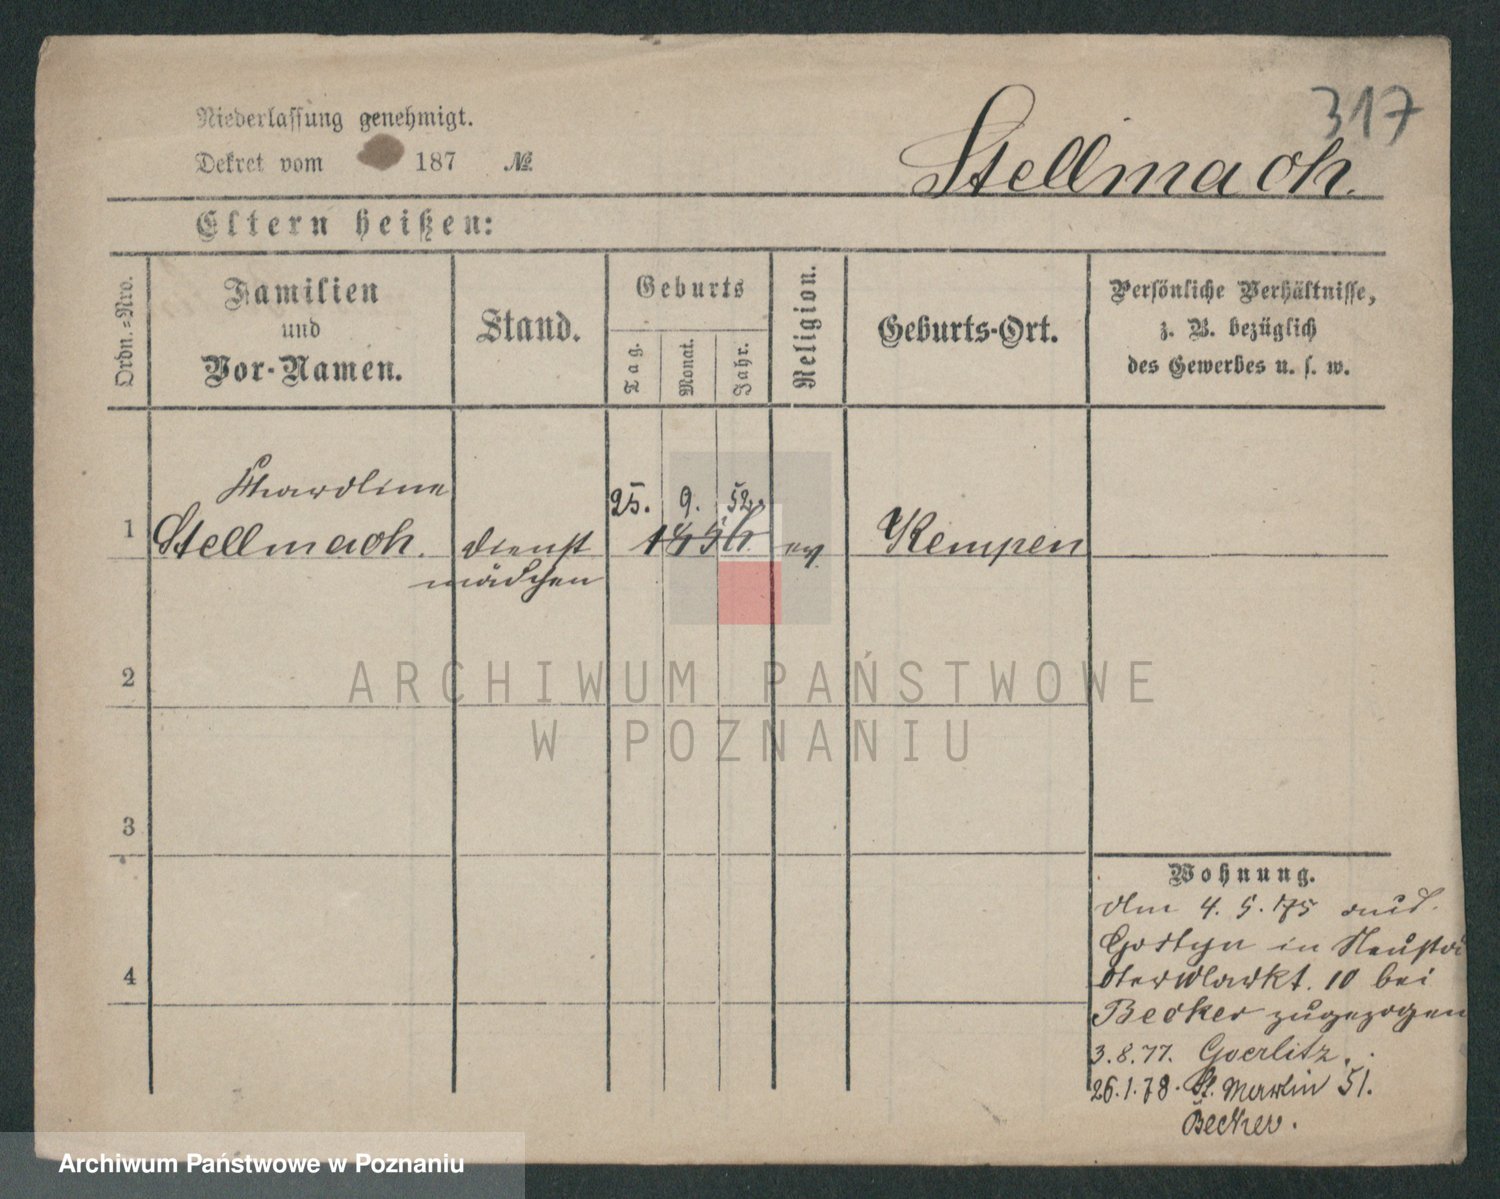 317
Niederlassung genehmigt.
Stellmach.
Dekret vom 187 №
Eltern heißen:
Ordn.=Nro.
Familien
und
Vor-Namen.
Stand.
Geburts
Tag.
Monat.
Jahr.
Religion.
Geburts-Ort.
Persönliche Verhältnisse,
z. B. bezüglich
des Gewerbes u. s. w.
25. 9. 52.
1 Stellmach. Dienst 1856 ev. Kempen
mädchen
2
ARCHIWUM PAŃSTWOWE
W POZNANIU
3
Wohnung.
Am 4. 5. 75 aus
Gostyn in Neustä
dter Markt. 10 bei
4
Becker zugezogen
3.8.77. Goerlitz.
26.1.78. St. Martin 51.
Becker.
Archiwum Państwowe w Poznaniu